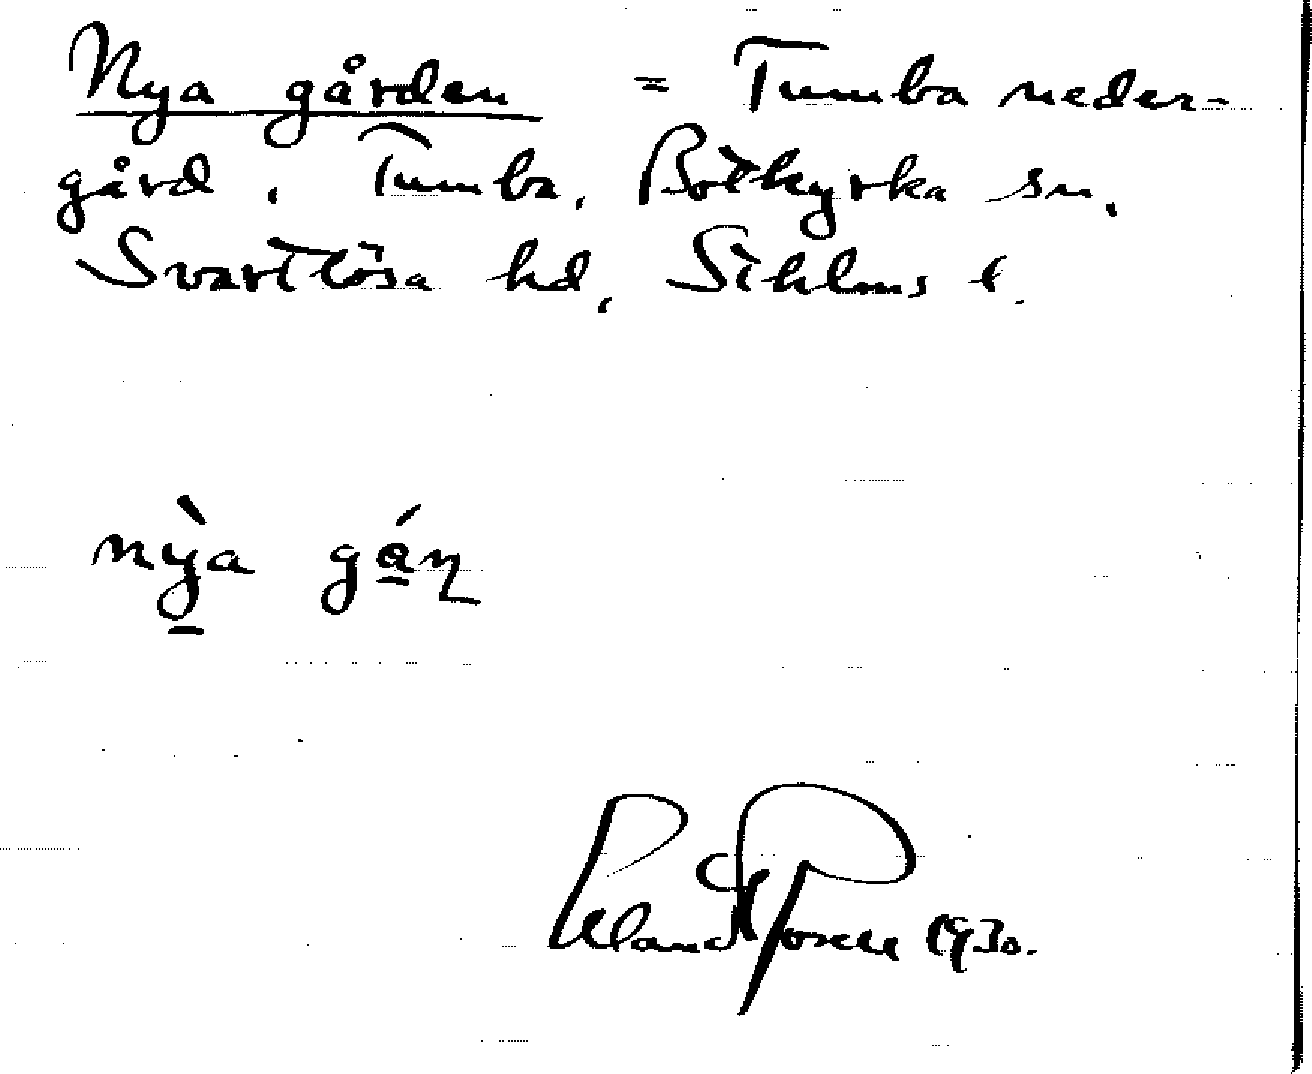 Nya gården = Tumba neder-
gård, Tumba, Botkyrka sn,
Svartlösa hd, Sthlms l.
nỳa gáɳ
1930.